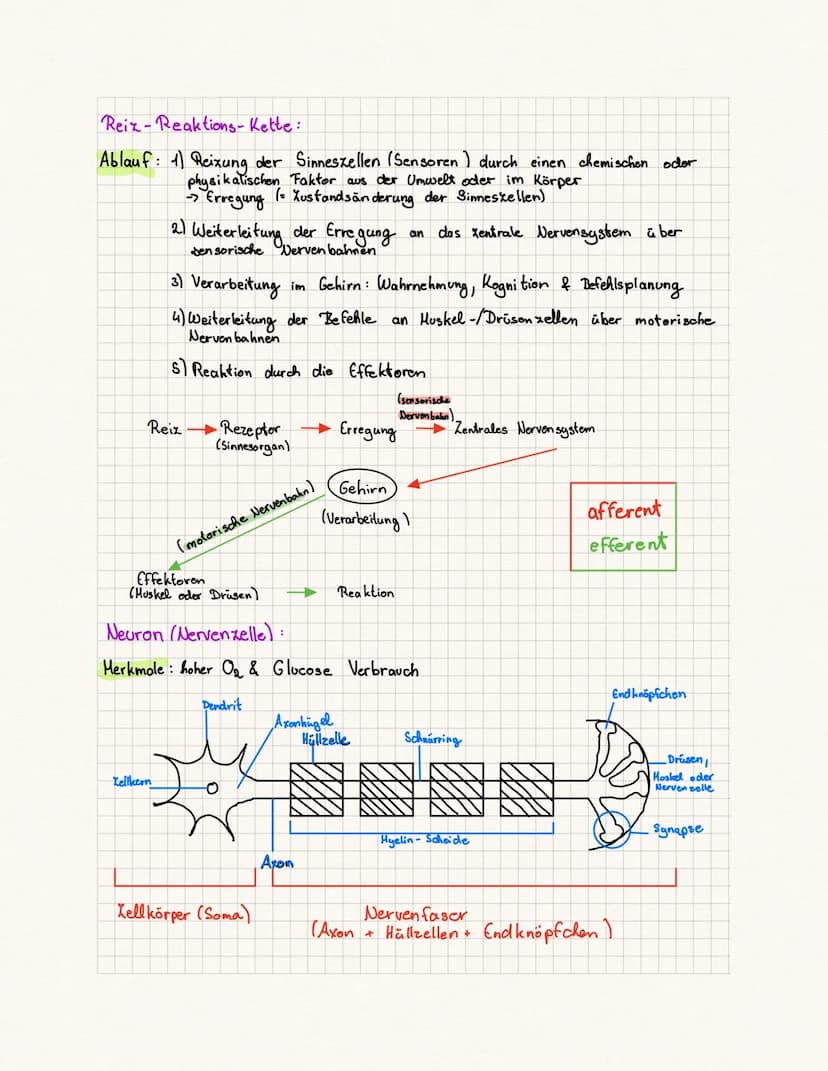 Reiz-Reaktions-Kette:
Ablauf: 1) Reizung der Sinneszellen (Sensoren) durch einen chemischen oder
physikalischen Faktor aus der Umwelt oder im Körper
-> Erregung (= Zustandsänderung der Sinneszellen)
2) Weiterleitung der Erregung an das zentrale Nervensystem über
sensorische Nervenbahnen
3) Verarbeitung im Gehirn: Wahrnehmung, Kognition & Befehlsplanung
4) Weiterleitung der Befehle an Muskel-/Drüsenzellen über motorische
Nervenbahnen
5) Reaktion durch die Effektoren
(sensorische
Nervenbahn)
Reiz → Rezeptor → Erregung → Zentrales Nervensystem
(Sinnesorgan)
Gehirn
(motorische Nervenbahn)
(Verarbeitung)
afferent
efferent
Effektoren
(Muskel oder Drüsen) → Reaktion
Neuron (Nervenzelle):
Merkmale: hoher O₂ & Glucose Verbrauch
Endknöpfchen
Dendrit
Axonhügel
Hüllzelle
Schnürring
Drüsen,
Muskel oder
Nervenzelle
Zellkern
Synapse
Myelin-Scheide
Axon
Zellkörper (Soma)
Nervenfaser
(Axon + Hüllzellen + Endknöpfchen)